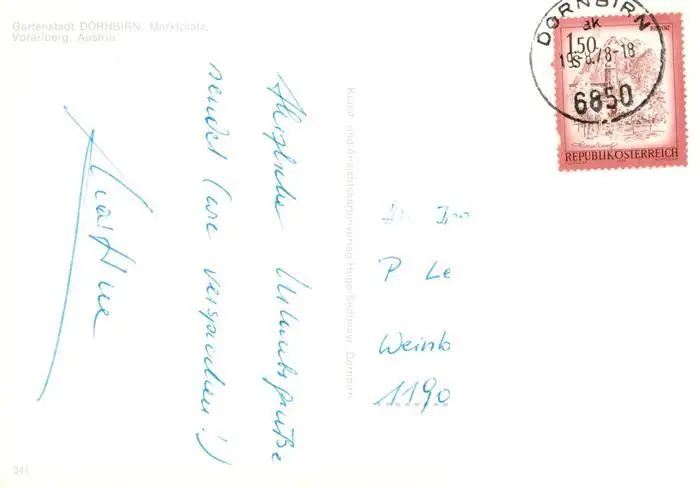 Gartenstadt DORNBIRN, Marktplatz,
Vorarlberg, Austria
Herzliche Urlaubsgrüße
sendet (wie versprochen!)
Kunst- und Ansichtskartenverlag Hugo Sedlmayr, Dornbirn
DORNBIRN
ak
-8.78-18
6850
1.50
REPUBLIK ÖSTERREICH
P Le
Weinb
1190
341